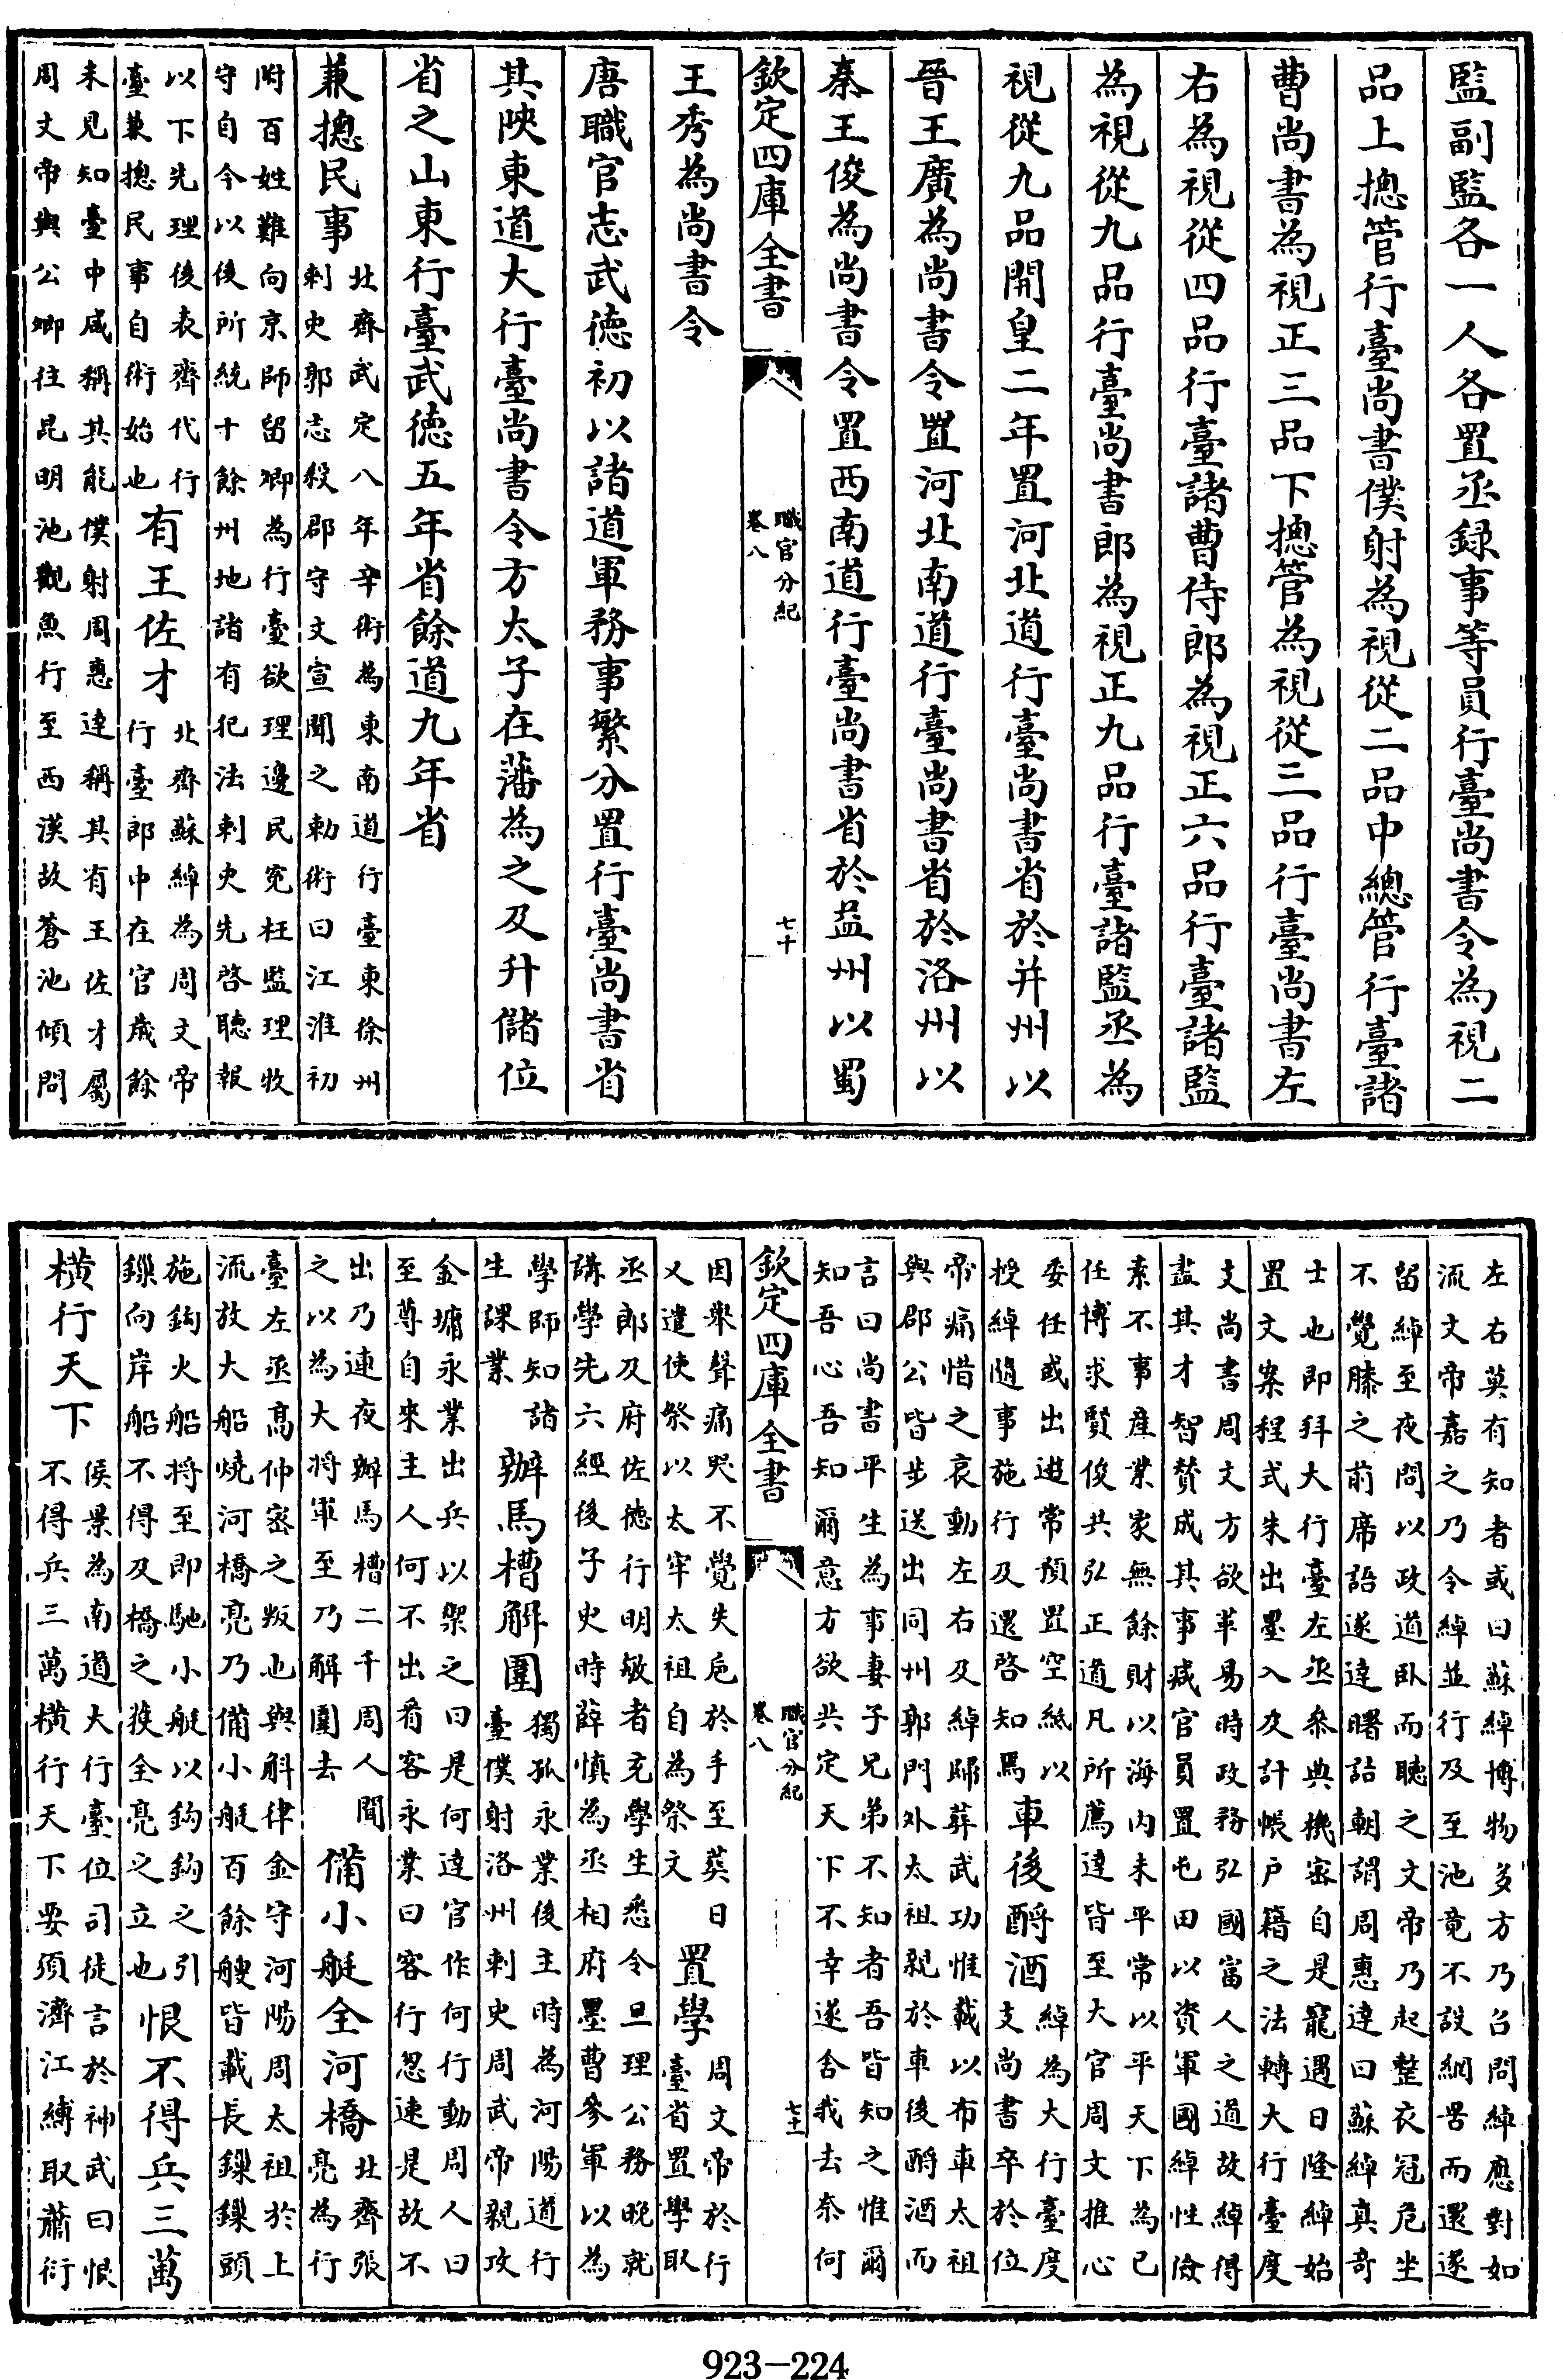 監副監各一人各置丞録事等員行臺尚書令為視二
品上揔管行臺尚書僕射為視從二品中總管行臺諸
曹尚書為視正三品下揔管為視從三品行臺尚書左
右為視從四品行臺諸曹侍郎為視正六品行臺諸監
為視從九品行臺尚書郎為視正九品行臺諸監丞為
視從九品開皇二年置河北道行臺尚書省於并州以
晉王廣為尚書令置河北南道行臺尚書省於洛州以
秦王俊為尚書令置西南道行臺尚書省於益州以蜀
欽定四庫全書
職官分紀
卷八
七十
王秀為尚書令
唐職官志武徳初以諸道軍務事繁分置行臺尚書省
其陜東道大行臺尚書令方太子在藩為之及升儲位
省之山東行臺武徳五年省餘道九年省
兼揔民事
北齊武定八年辛術為東南道行臺東徐州
刺史郭志殺郡守文宣聞之勅術曰江淮初
附百姓難向京師留卿為行臺欲理邊民寃枉監理牧
守自今以後所統十餘州地諸有犯法刺史先啓聽報
以下先理後表齊代行
臺兼揔民事自術始也
有王佐才
北齊蘇綽為周文帝
行臺郎中在官歲餘
未見知臺中咸稱其能僕射周惠達稱其有王佐才屬
周文帝與公卿往昆明池觀魚行至西漢故蒼池傾問
左右莫有知者或曰蘇綽博物多方乃召問綽應對如
流文帝嘉之乃令綽並行及至池竟不設網罟而還遂
留綽至夜問以政道卧而聽之文帝乃起整衣冠危坐
不覺膝之前席語遂達曙詰朝謂周惠達曰蘇綽真竒
士也即拜大行臺左丞叅典機宻自是寵遇日隆綽始
置文案程式朱出墨入及計帳户籍之法轉大行臺度
支尚書周文方欲革易時政務弘國富人之道故綽得
盡其才智賛成其事减官員置屯田以資軍國綽性儉
素不事産業家無餘財以海内未平常以平天下為已
任博求賢俊共弘正道凡所薦達皆至大官周文推心
委任或出遊常預置空紙以
授綽隨事施行及還啓知焉
車後酹酒
綽為大行臺度
支尚書卒於位
帝痛惜之哀動左右及綽歸葬武功惟載以布車太祖
與郡公皆步送出同州郭門外太祖親於車後酹酒而
言曰尚書平生為事妻子兄弟不知者吾皆知之惟爾
知吾心吾知爾意方欲共定天下不幸遂舍我去奈何
欽定四庫全書
職官分紀
卷八
七十一
因舉聲痛哭不覺失巵於手至葬日
又遣使祭以太牢太祖自為祭文
置學
周文帝於行
臺省置學取
丞郎及府佐徳行明敏者充學生悉令旦理公務晚就
講學先六經後子史時薛慎為丞相府墨曹參軍以為
學師知諸
生課業
辦馬槽解圍
獨孤永業後主時為河陽道行
臺僕射洛州刺史周武帝親攻
金墉永業出兵以禦之曰是何達官作何行動周人曰
至尊自來主人何不出㸔客永業曰客行忽速是故不
出乃連夜辦馬槽二千周人聞
之以為大將軍至乃解圍去
備小艇全河橋
北齊張
亮為行
臺左丞髙仲宻之叛也與斛律金守河陽周太祖於上
流放大船燒河橋亮乃備小艇百餘艘皆載長鏁鏁頭
施鈎火船將至即馳小艇以鈎鈎之引
鏁向岸船不得及橋之獲全亮之立也
恨不得兵三萬
橫行天下
侯景為南道大行臺位司徒言於神武曰恨
不得兵三萬橫行天下要須濟江縛取蕭衍
923-224